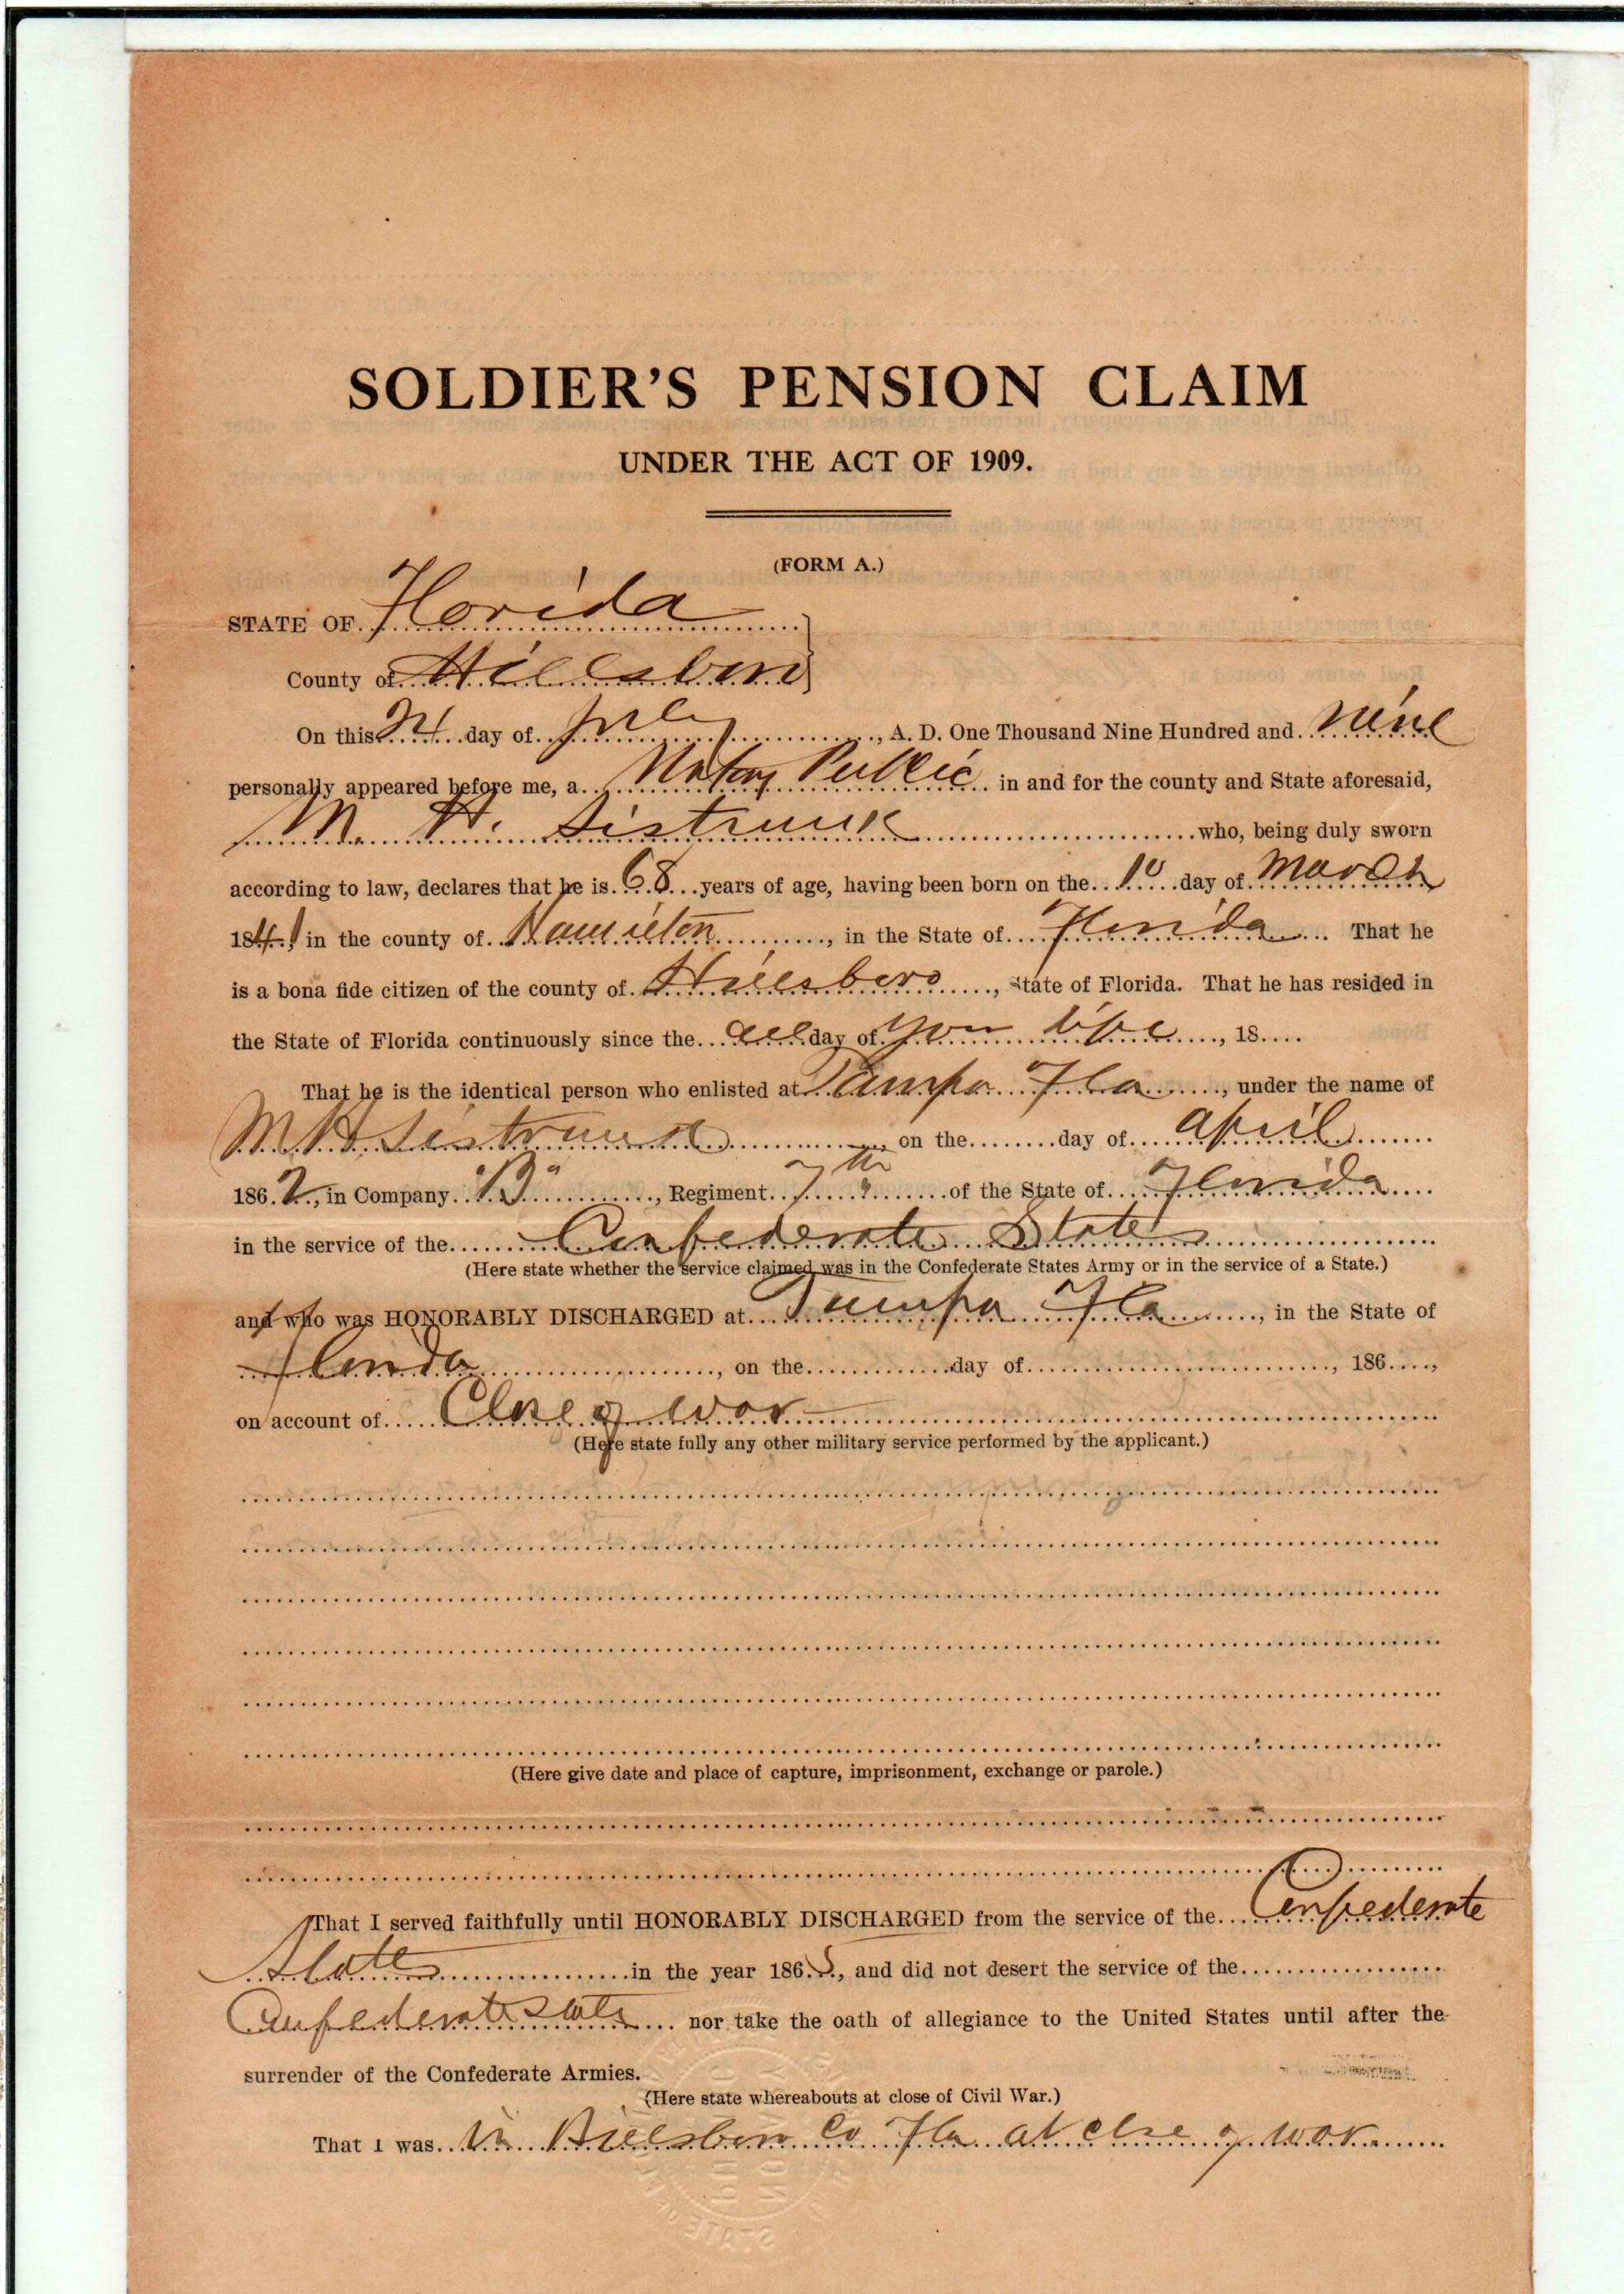 SOLDIER'S PENSION CLAIM
UNDER THE ACT OF 1909.
(FORM A.)
STATE OF Florida
County of Hillsboro
On this 24 day of July, A. D. One Thousand Nine Hundred and nine
personally appeared before me, a Notary Public in and for the county and State aforesaid,
M. H. Sistrunk who, being duly sworn
according to law, declares that he is 68 years of age, having been born on the 10 day of March
1841, in the county of Hamilton, in the State of Florida That he
is a bona fide citizen of the county of Hillsboro, State of Florida. That he has resided in
the State of Florida continuously since the all day of your life, 18....
That he is the identical person who enlisted at Tampa Fla, under the name of
M H Sistrunk, on the ........ day of April
1862, in Company "B", Regiment 7th of the State of Florida
in the service of the Confederate States
(Here state whether the service claimed was in the Confederate States Army or in the service of a State.)
and who was HONORABLY DISCHARGED at Tampa Fla, in the State of
Florida, on the ........ day of ........, 186....,
on account of Close of war
(Here state fully any other military service performed by the applicant.)
(Here give date and place of capture, imprisonment, exchange or parole.)
That I served faithfully until HONORABLY DISCHARGED from the service of the Confederate
States in the year 1865, and did not desert the service of the
Confederate States nor take the oath of allegiance to the United States until after the
surrender of the Confederate Armies.
(Here state whereabouts at close of Civil War.)
That I was in Hillsboro Co Fla at close of war